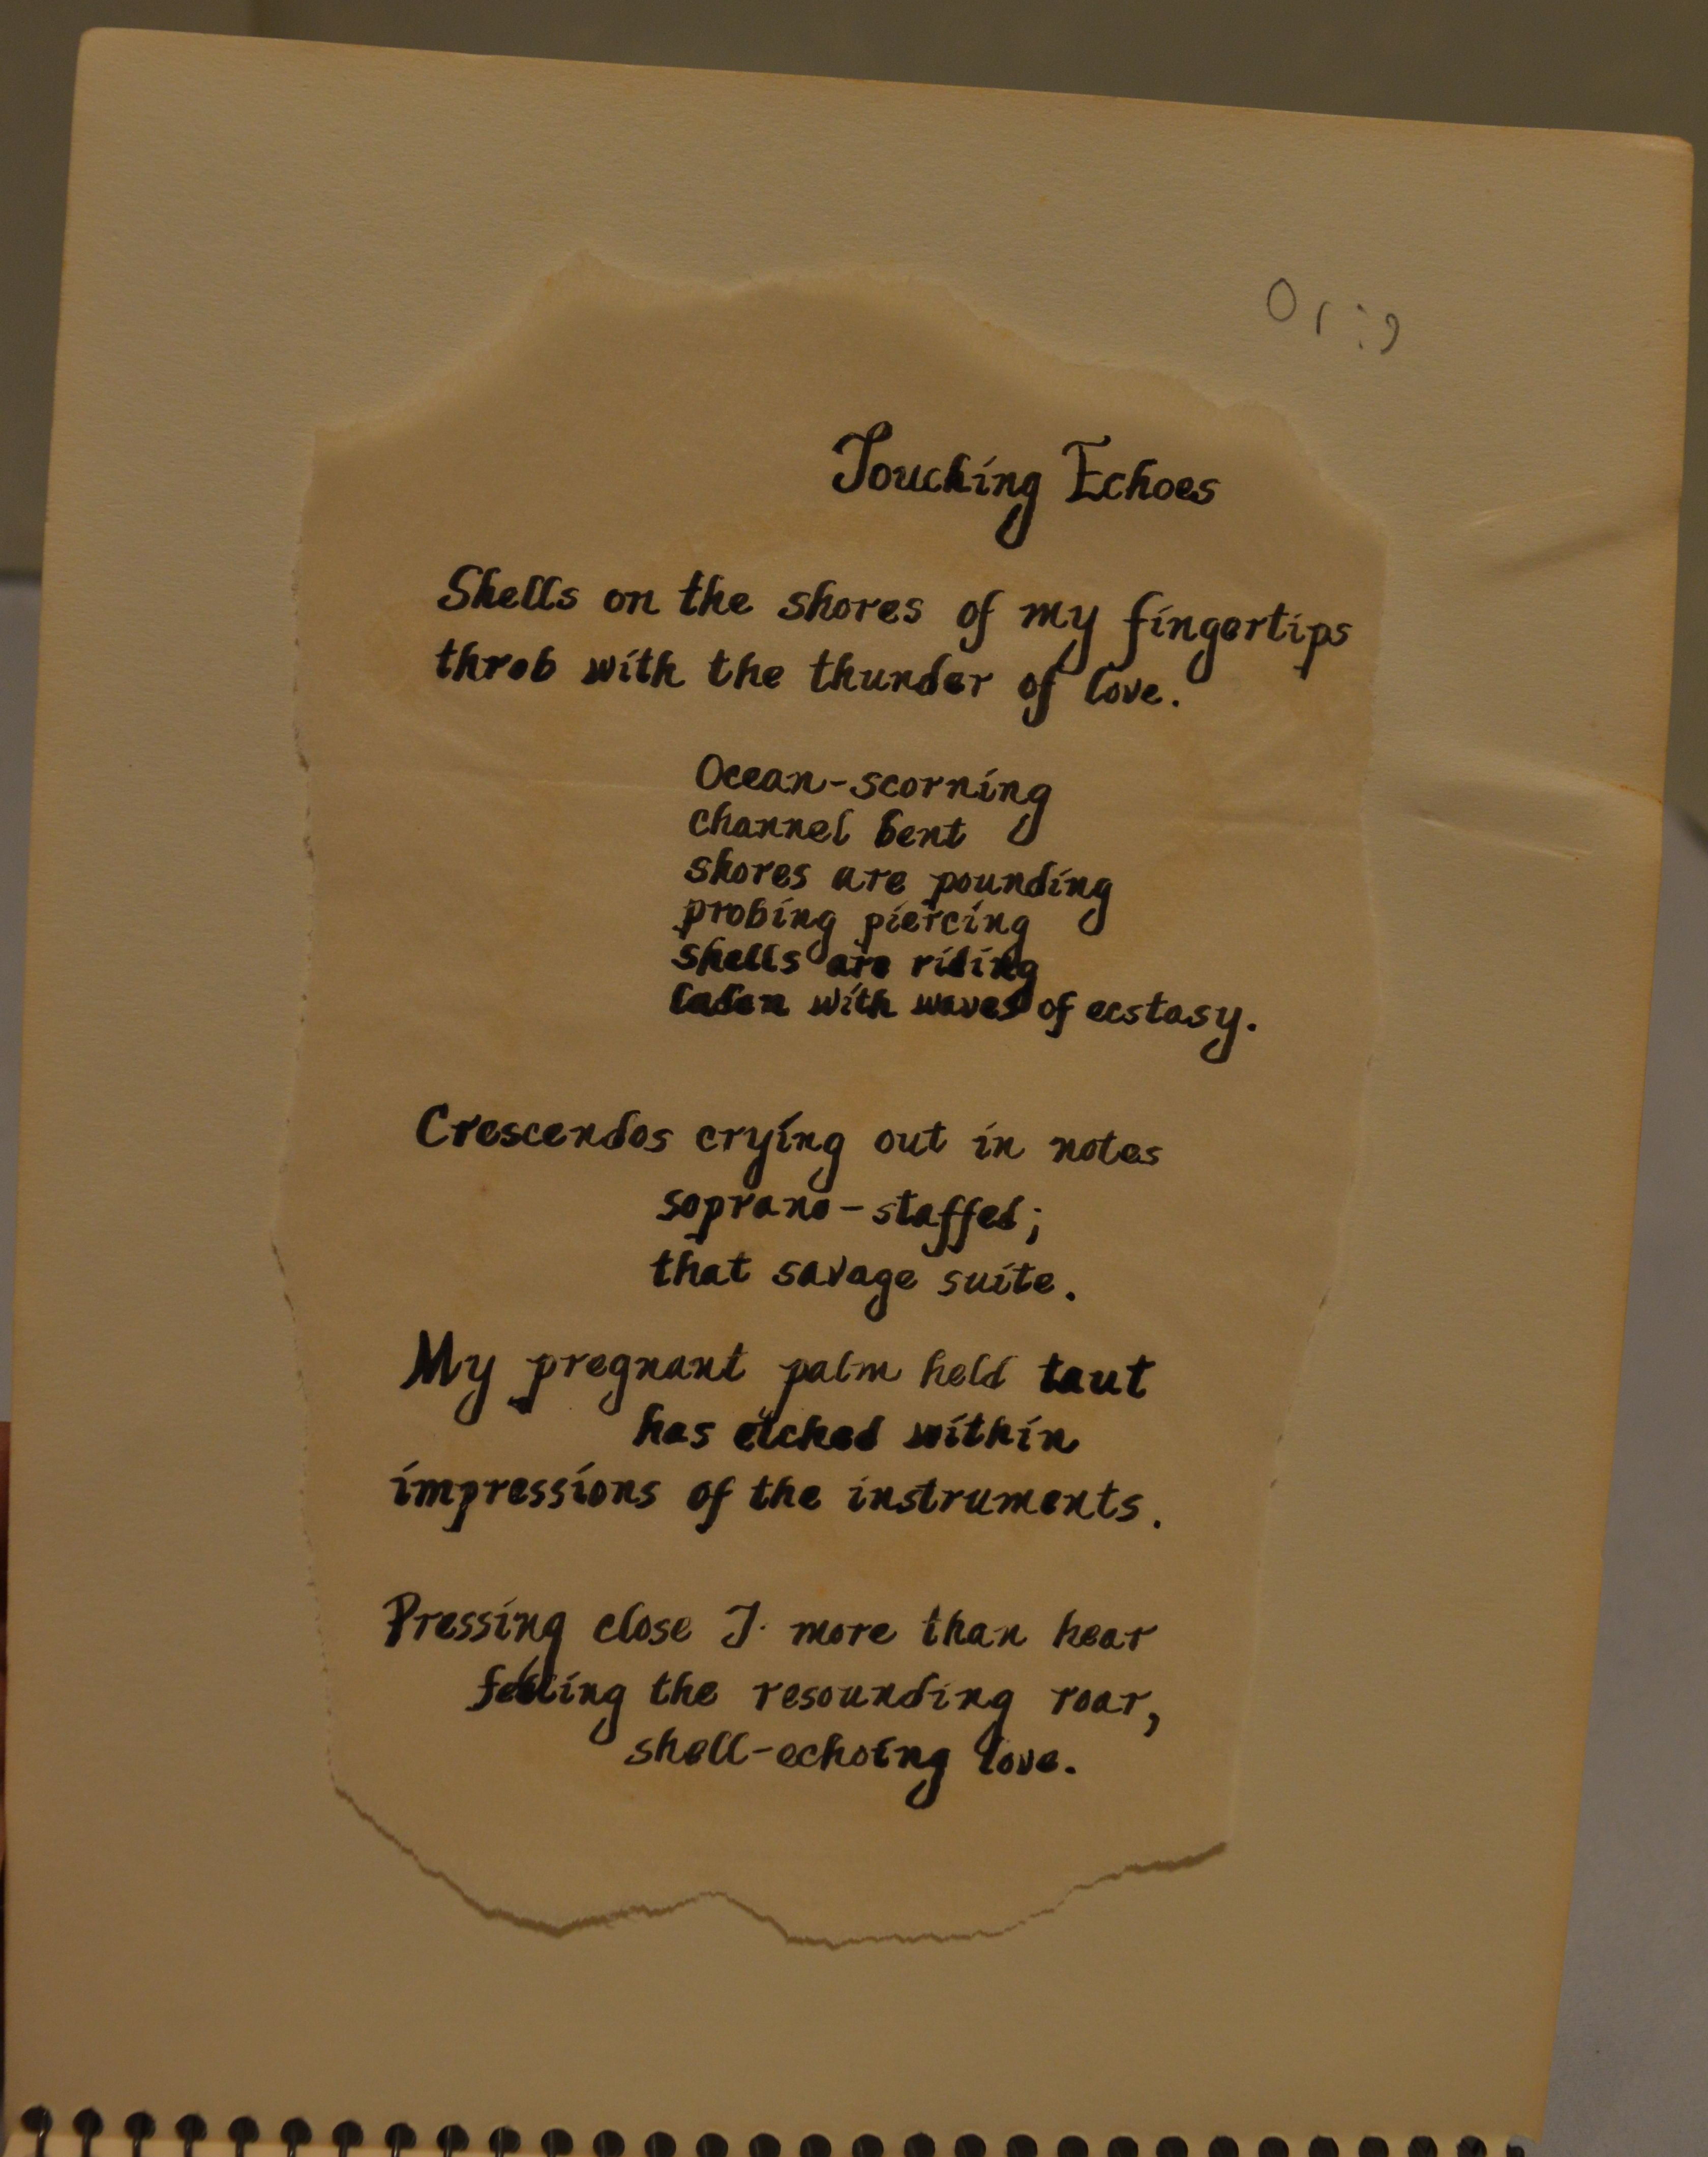 Orig
Touching Echoes
Shells on the shores of my fingertips
throb with the thunder of love.
Ocean-scorning
channel bent
shores are pounding
probing piercing
shells are riding
laden with waves of ecstasy.
Crescendos crying out in notes
soprano-staffed;
that savage suite.
My pregnant palm held taut
has etched within
impressions of the instruments.
Pressing close I more than hear
feeling the resounding roar,
shell-echoing love.